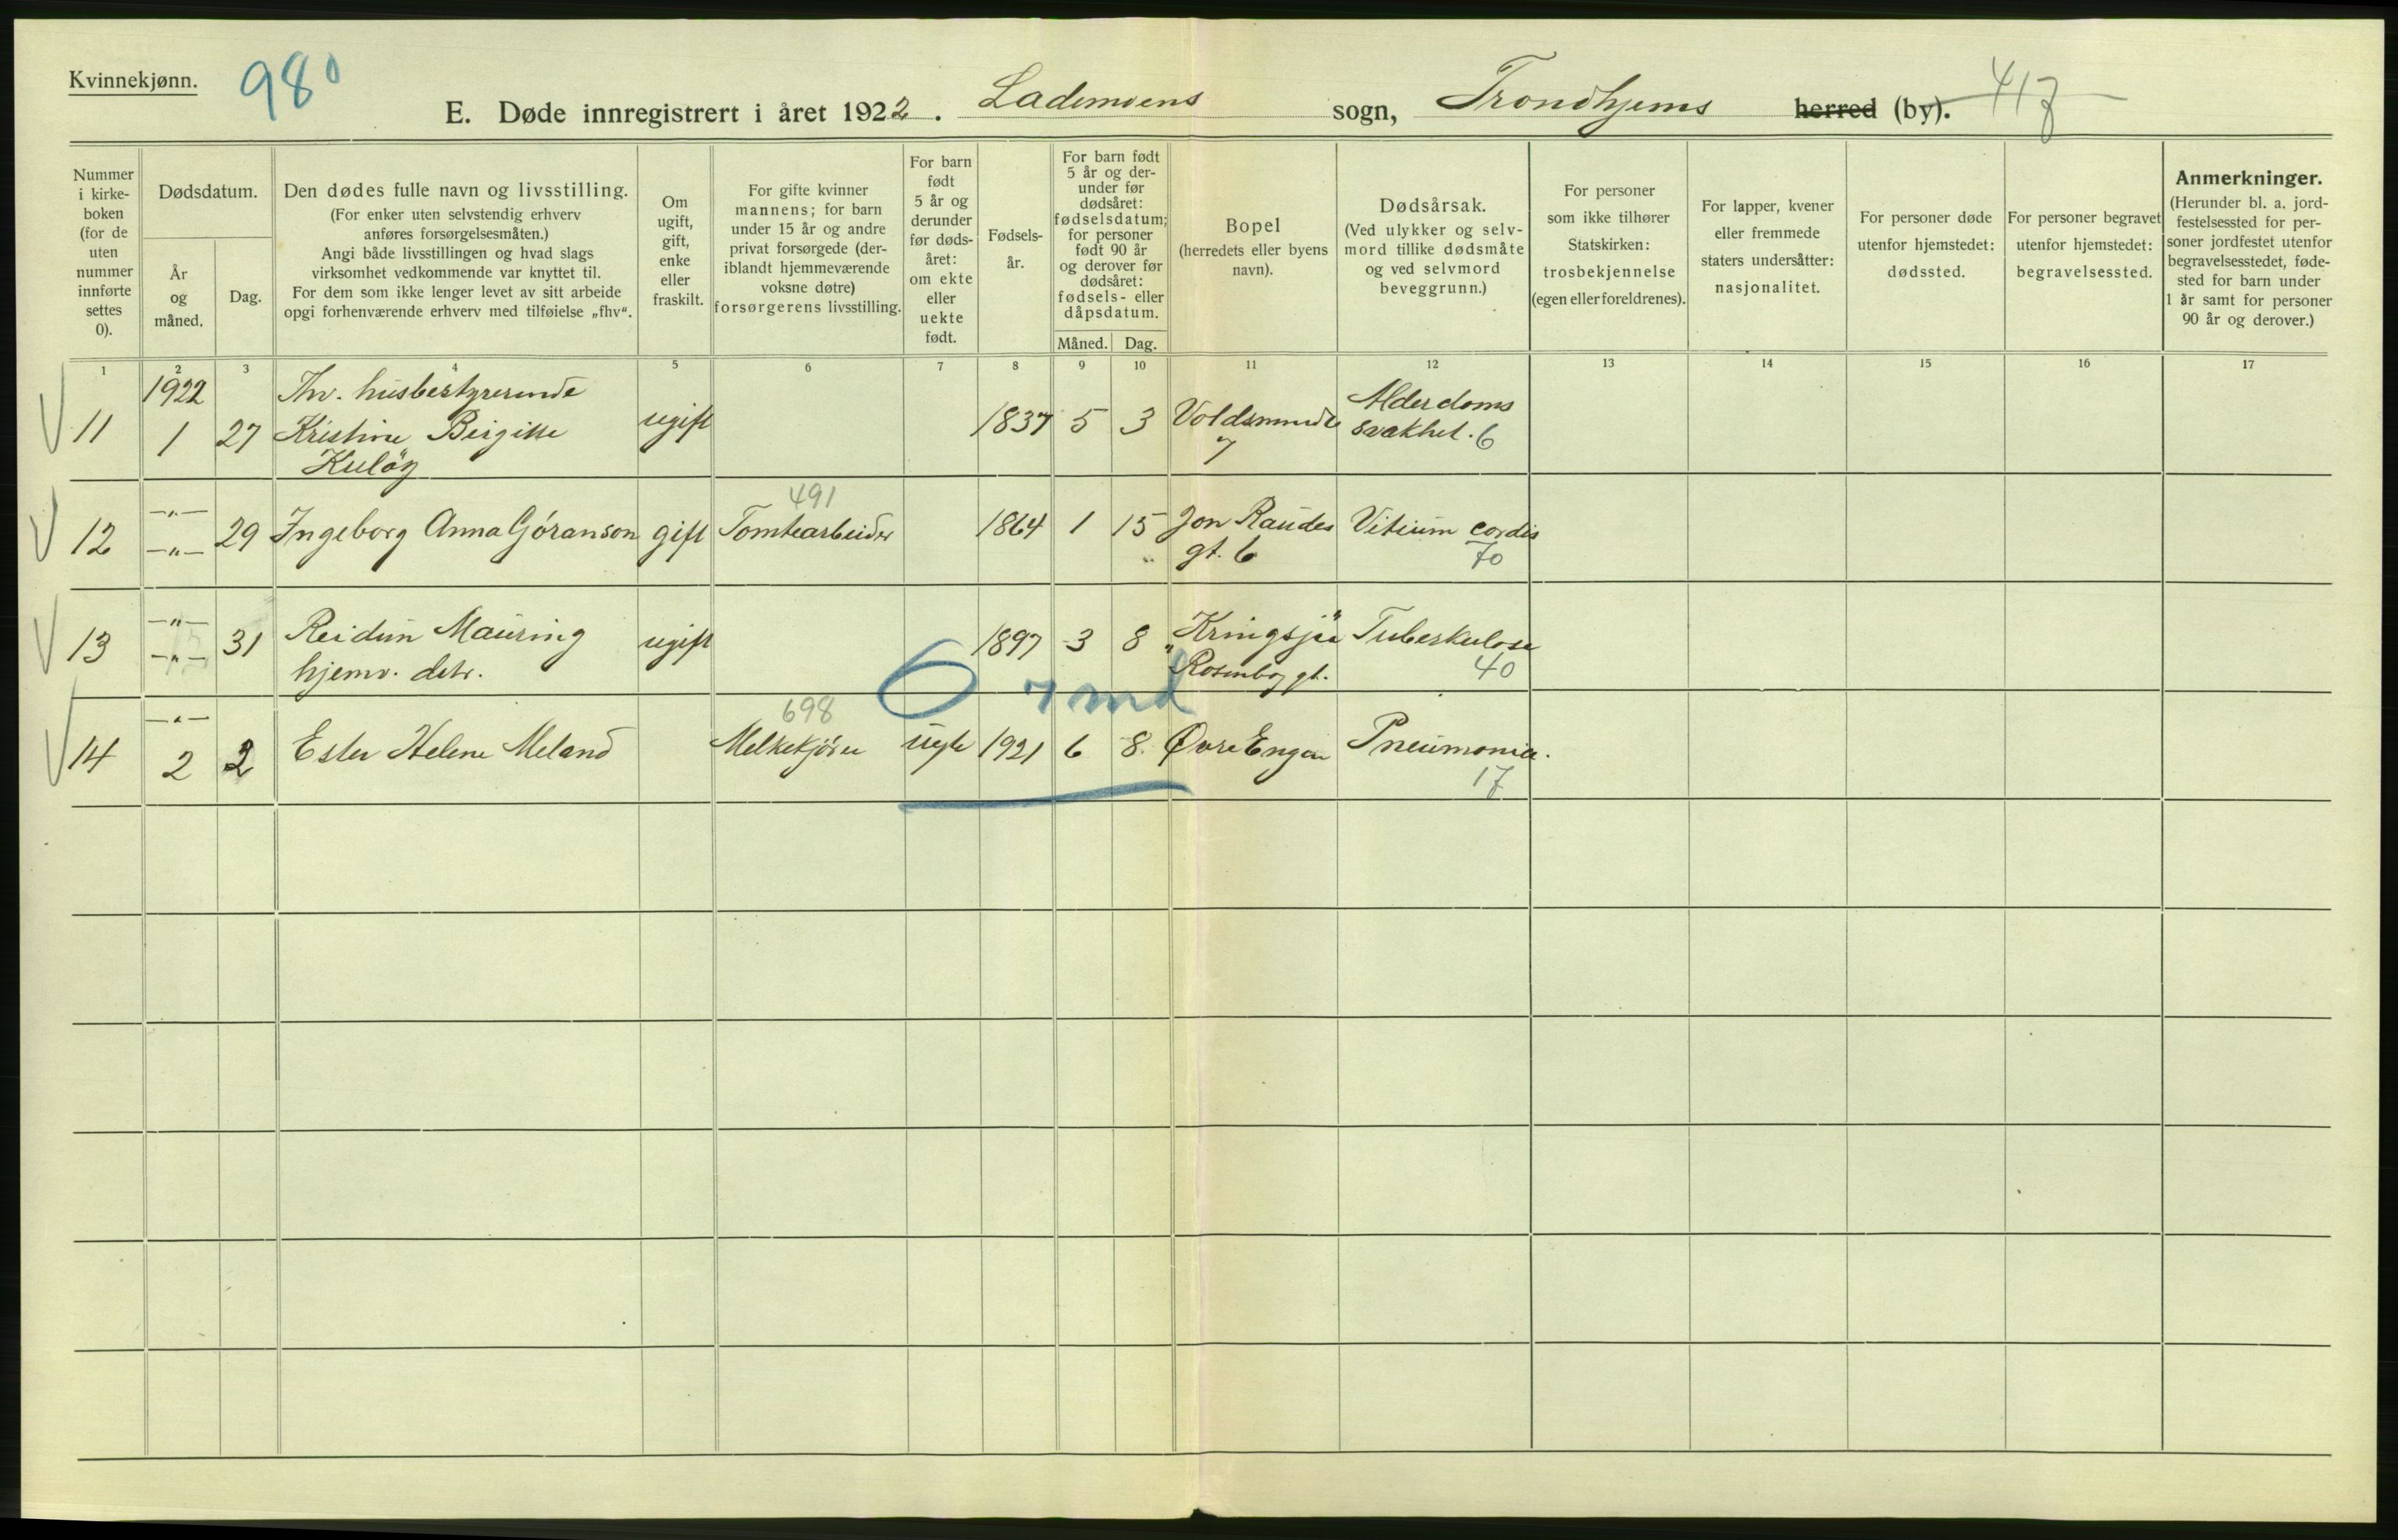 Kvinnekjønn.
980
E. Døde innregistrert i året 1922. Lademoens sogn, Trondhjems herred (by). 417
Nummer i kirkeboken (for de uten nummer innførte settes 0).
Dødsdatum.
År og måned.
Dag.
Den dødes fulle navn og livsstilling.
(For enker uten selvstendig erhverv
anføres forsørgelsesmåten.)
Angi både livsstillingen og hvad slags
virksomhet vedkommende var knyttet til.
For dem som ikke lenger levet av sitt arbeide
opgi forhenværende erhverv med tilføielse „fhv“.
Om ugift, gift, enke eller fraskilt.
For gifte kvinner
mannens; for barn
under 15 år og andre
privat forsørgede (der-
iblandt hjemmeværende
voksne døtre)
forsørgerens livsstilling.
For barn
født
5 år og
derunder
før døds-
året:
om ekte
eller
uekte
født.
Fødsels-
år.
For barn født
5 år og der-
under før
dødsåret:
fødselsdatum;
for personer
født 90 år
og derover før
dødsåret:
fødsels- eller
dåpsdatum.
Måned. Dag.
Bopel
(herredets eller byens
navn).
Dødsårsak.
(Ved ulykker og selv-
mord tillike dødsmåte
og ved selvmord
beveggrunn.)
For personer
som ikke tilhører
Statskirken:
trosbekjennelse
(egen eller foreldrenes).
For lapper, kvener
eller fremmede
staters undersåtter:
nasjonalitet.
For personer døde
utenfor hjemstedet:
dødssted.
For personer begravet
utenfor hjemstedet:
begravelsessted.
Anmerkninger.
(Herunder bl. a. jord-
festelsessted for per-
soner jordfestet utenfor
begravelsesstedet, føde-
sted for barn under
1 år samt for personer
90 år og derover.)
1 2 3 4 5 6 7 8 9 10 11 12 13 14 15 16 17
1922 fhv. husbestyrerinde Alderdoms
11 1 27 Kristine Birgitte ugift 1837 5 3 Voldsminde svakhet. 6
7
491
12 —"— 29 Ingeborg Anna Göranson gift Tomtearbeider 1864 1 15 Jon Raudes Vitium cordis
—"— gt. 6 70
13 —"— 31 Reidun Mauring ugift 1897 3 8 „Kringsjå" Tuberkulose
—"— hjemv. datr. Rosenborg gt. 40
6 7 md
698
—"—
14 2 2 Ester Helene Meland Melkekjörer uegte 1921 6 8. Øvre Engen Pneumonia.
17